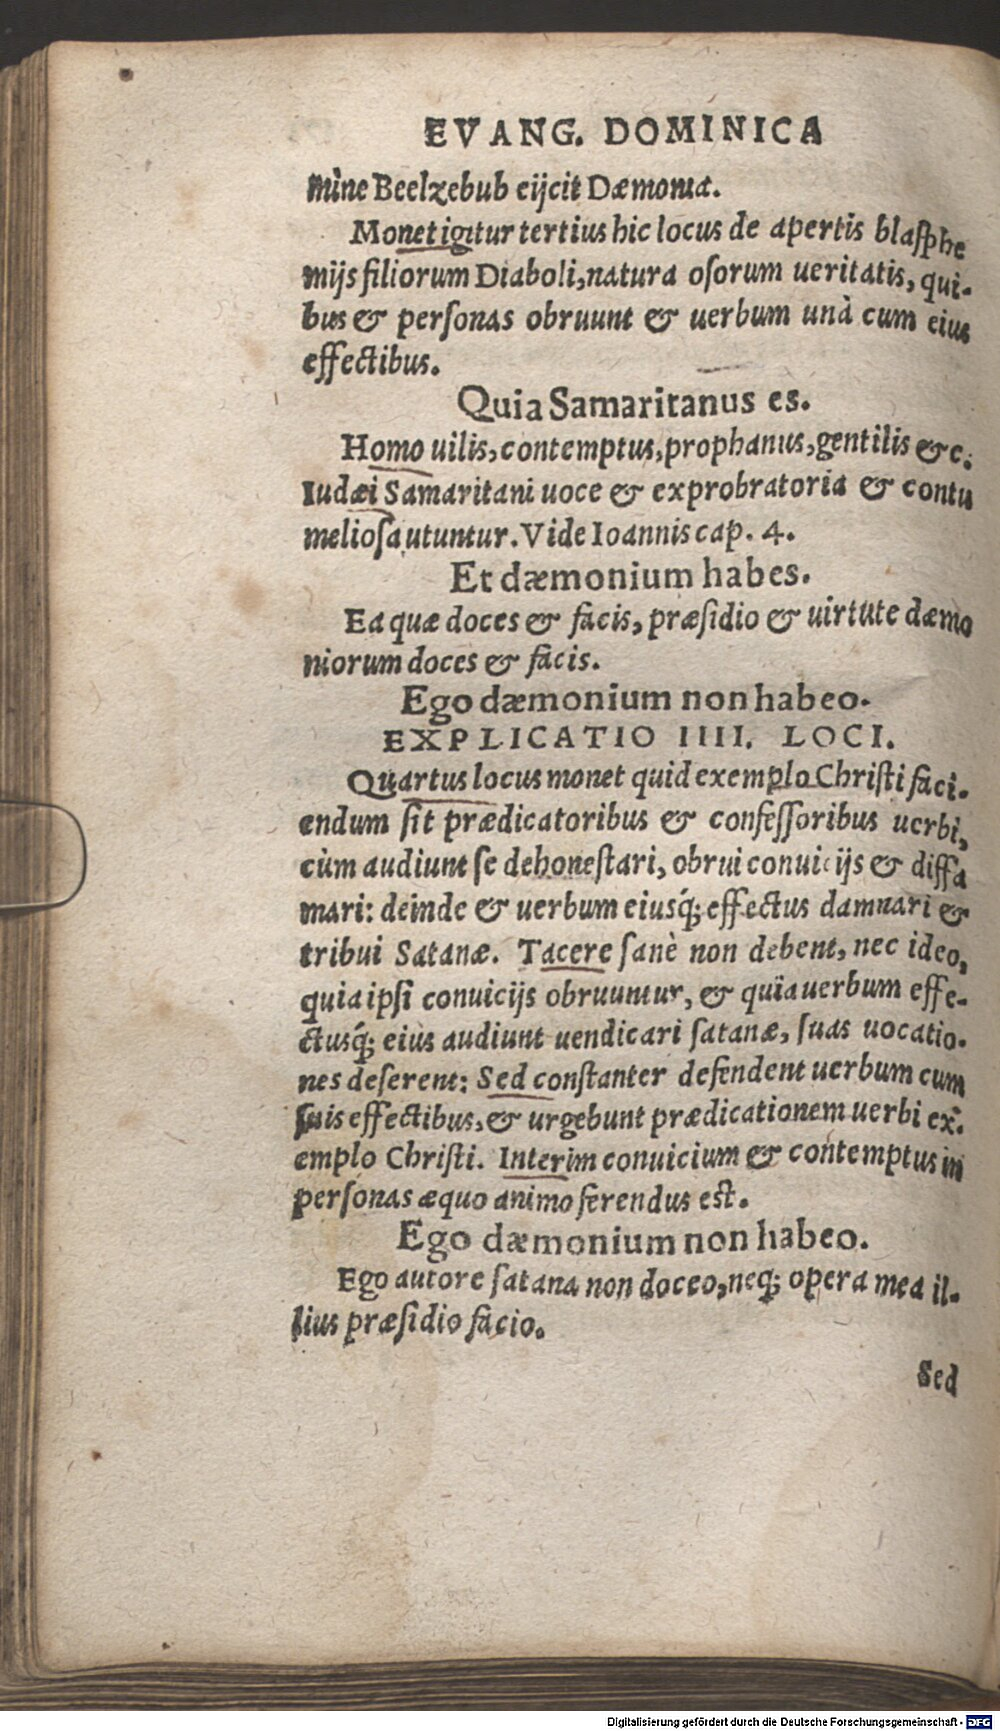 EVANG. DOMINICA
mine Beelzebub eijcit Dæmonia.
Monet igitur tertius hic locus de apertis blasphe
mijs filiorum Diaboli, natura osorum ueritatis, qui-
bus & personas obruunt & uerbum unà cum eius
effectibus.
Quia Samaritanus es.
Homo uilis, contemptus, prophanus, gentilis &c.
Iudæi Samaritani uoce & exprobratoria & contu
meliosa utuntur. Vide Ioannis cap. 4.
Et dæmonium habes.
Ea quæ doces & facis, præsidio & uirtute dæmo
niorum doces & facis.
Ego dæmonium non habeo.
EXPLICATIO IIII. LOCI.
Quartus locus monet quid exemplo Christi faci-
endum sit prædicatoribus & confessoribus uerbi,
cùm audiunt se dehonestari, obrui conuicijs & diffa
mari: deinde & uerbum eiusq́; effectus damnari &
tribui Satanæ. Tacere sanè non debent, nec ideo,
quia ipsi conuicijs obruuntur, & quia uerbum effe-
ctusq́; eius audiunt uendicari satanæ, suas uocatio-
nes deserent: Sed constanter defendent uerbum cum
suis effectibus, & urgebunt prædicationem uerbi ex-
emplo Christi. Interim conuicium & contemptus in
personas æquo animo ferendus est.
Ego dæmonium non habeo.
Ego autore satana non doceo, neq; opera mea il-
lius præsidio facio.
Sed
Digitalisierung gefördert durch die Deutsche Forschungsgemeinschaft - DFG